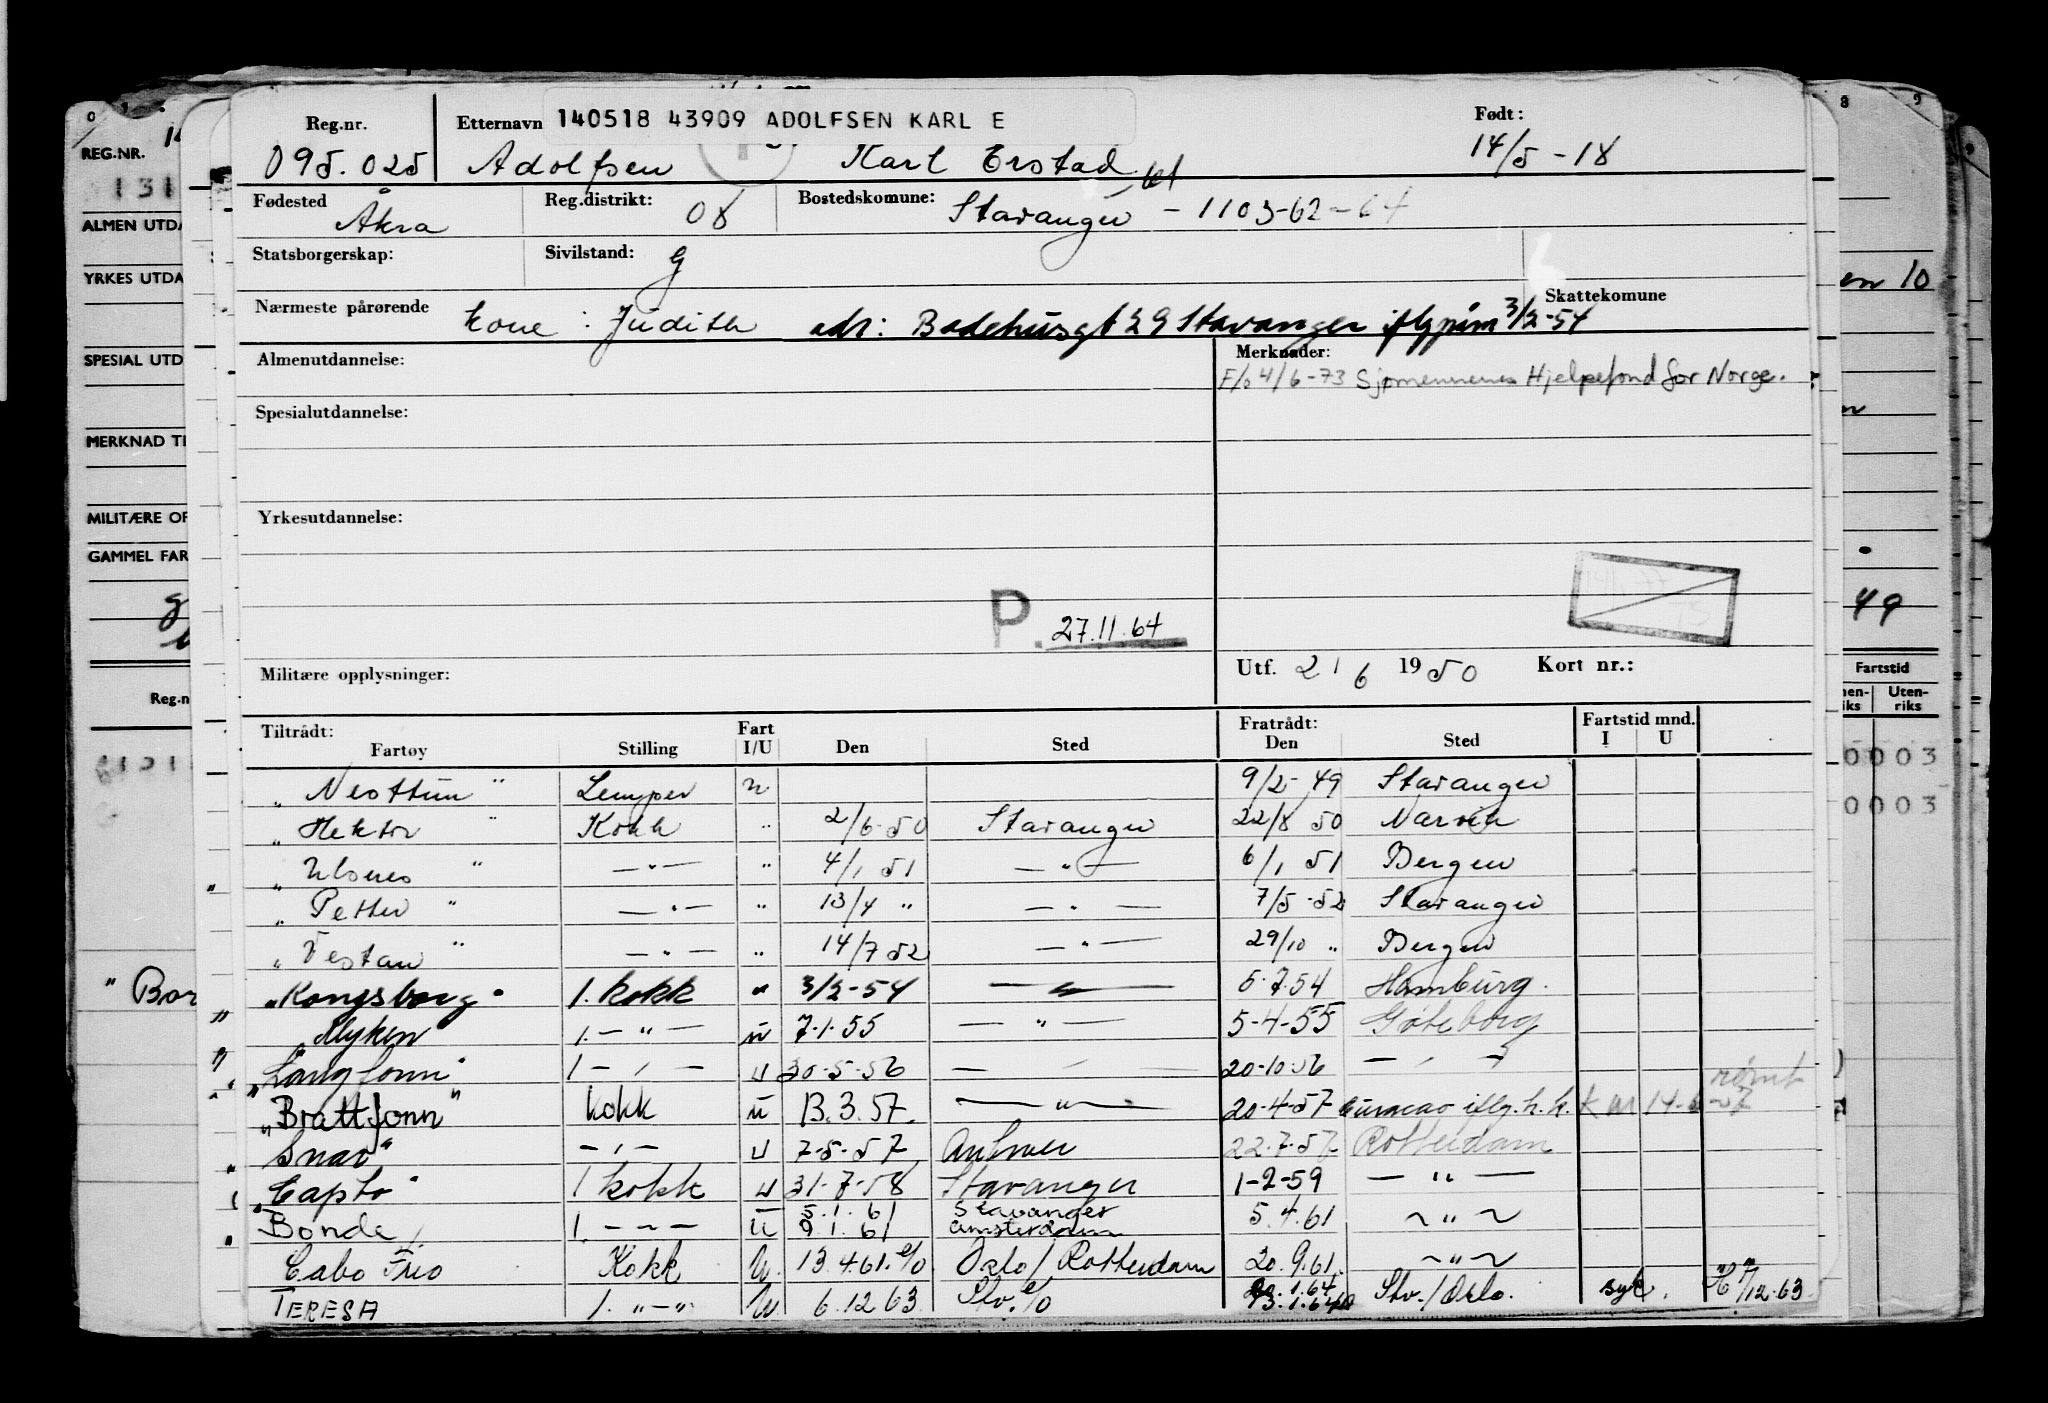 Reg.nr. Etternavn 140518 43909 ADOLFSEN KARL E Født:
095.025 Adolfsen Karl Erstad 14/5-18
Fødested Åkra Reg.distrikt: 08 Bostedskomune: Stavanger - 1103-62-64
Statsborgerskap: Sivilstand: G
Nærmeste pårørende kone: Judith adr: Badehusgt 29 Stavanger iflg påm 3/2-54 Skattekomune
Almenutdannelse: Merknader:
F/o 4/6-73 Sjømennenes Hjelpefond for Norge.
Spesialutdannelse:
Yrkesutdannelse:
P. 27.11.64
Militære opplysninger: Utf. 21 6 1950 Kort nr.:
Tiltrådt: Fart Fratrådt: Fartstid mnd.
Fartøy Stilling I/U Den Sted Den Sted I U
"Nesttun" Lemper u 9/2-49 Stavanger
"Hektor" Kokk " 2/6-50 Stavanger 22/8 50 Narvik
"Ulsnes" -"- " 4/1 51 -"- 6/1 51 Bergen
"Petter" -"- " 13/4 " -"- 7/5-52 Stavanger
"Vestan" -"- " 14/7 52 -"- 29/10 " Bergen
"Kongsborg" 1. kokk " 3/2-54 -"- 5.7.54 Hamburg.
Myken 1.-"- u 7.1.55 -"- 5-4-55 Göteborg
"Langfonn" 1-"- u 30-5-56 -"- 20-10-56 -"-
"Brattfonn" kokk u 13.3.57. -"- 20-4-57 Curacao iflg. h.k. rømt
"Snar" -"- u 7-5-57 Antwer 22.7.57 Rotterdam
"Capto" 1 kokk u 31-7-58 Stavanger 1-2-59 -"-
Bonde 1.-"- u 5.1.61 Stavanger 5.4.61 -"-
9.1.61 Amsterdam
Cabo Frio Kokk U. 13.4.61. e/o Oslo/Rotterdam 20.9.61. -"-
TERESA 1. "-" U. 6.12 63. Stv. e/o 13.1.64 Stv./Oslo. syk. 7/12.63
REG.NR.
131
ALMEN UTDA
YRKES UTDA
SPESIAL UTD
MERKNAD TI
MILITÆRE OP
GAMMEL FAR
Reg.n
"Bor
en 10
49
Fartstid
nen-
iks Uten-
riks
0003
0003